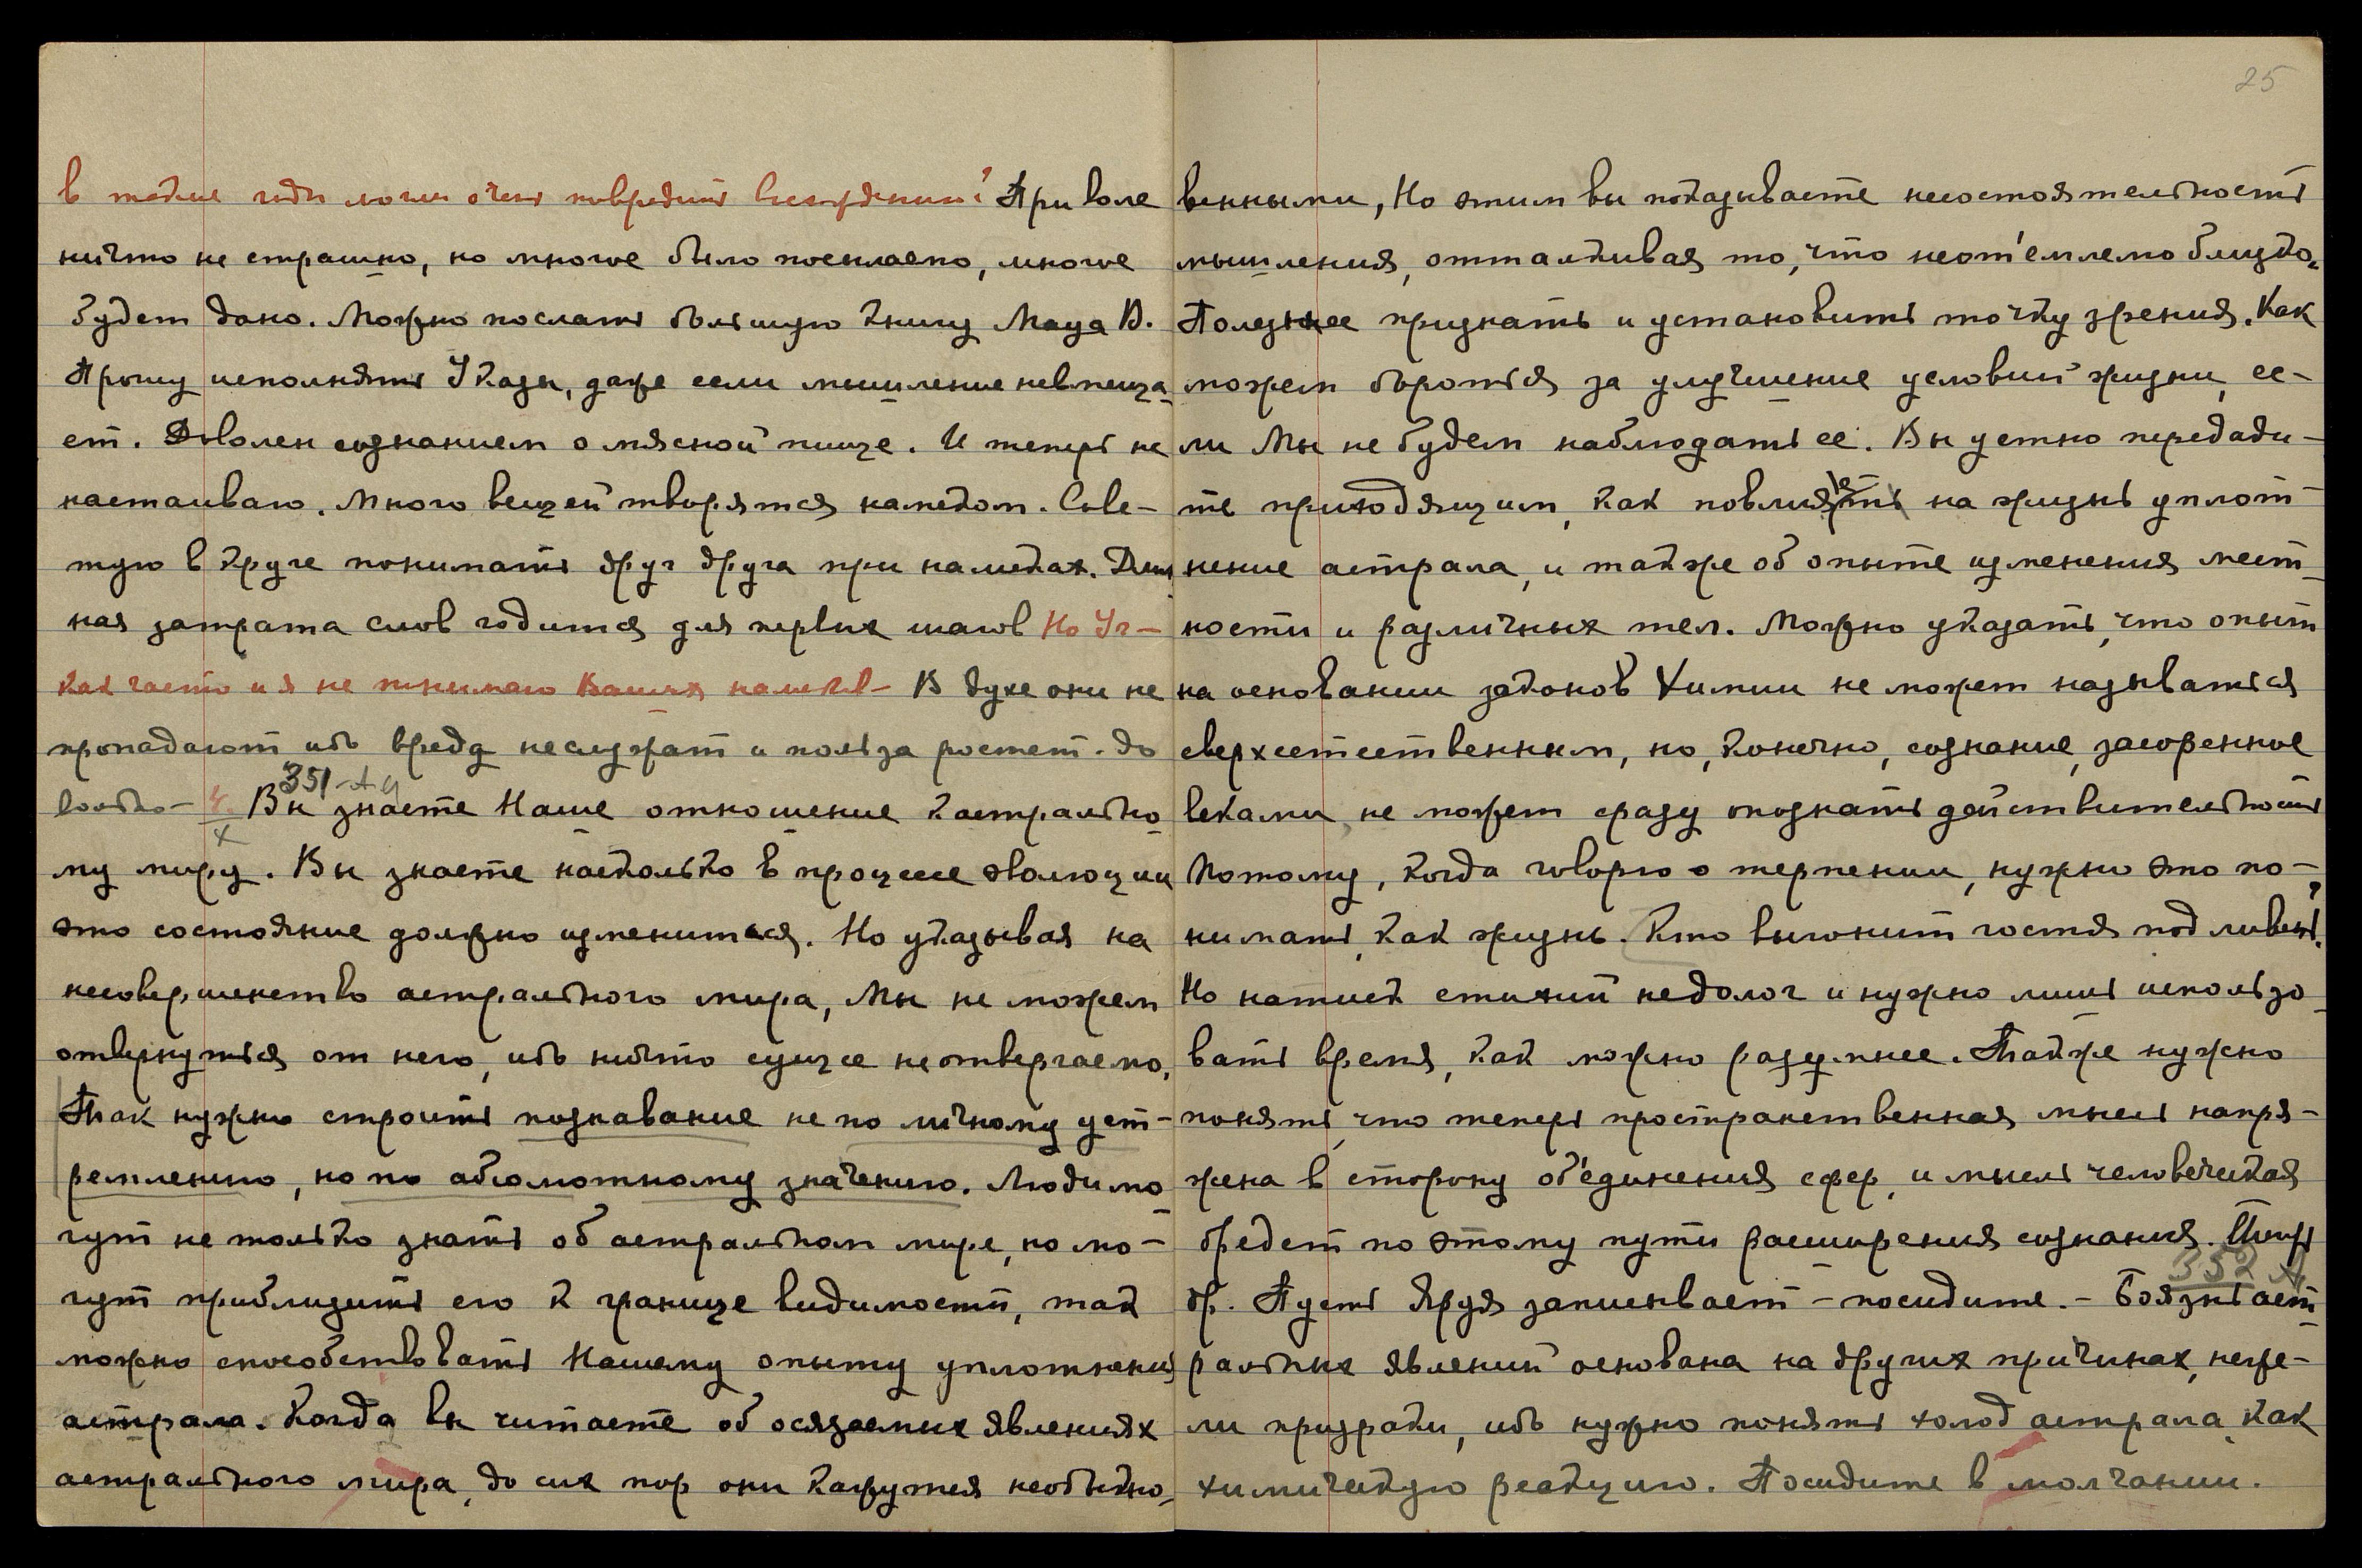 в такие годы могли очень повредить
При Воле
ничто не страшно, но многое было посылаемо, многое
будет дано. Можно послать большую книгу Мауа В.
Прошу исполнять Указы, даже если мышление невмеща-
ет. Доволен сознанием о мясной пище. И теперь не
настаиваю. Много вещей творятся намеком. Сове-
тую в круге понимать друг друга при намеках. Длин
ная затрата слов годится для первых шагов Но Уч-
как часто и я не понимаю Ваших намеков- В духе они не
пропадают ибо вреду не служат и польза ростет. до
вольно- 4. Вы знаете Наше отношение к астрально-
351
му миру. Вы знаете насколько в процессе эволюции
это состояние должно измениться. Но указывая на
несовершенство астрального мира, Мы не можем
отвернуться от него, ибо ничто сущее не отвергаемо,
Так нужно строить познавание не по личному уст-
ремлению, но по абсолютному значению. Люди мо-
гут не только знать об астральном мире, но мо-
гут приблизить его к границе видимости, так
можно способствовать Нашему опыту уплотнения
астрала. Когда вы читаете об осязаемых явлениях
астрального мира, до сих пор они кажутся необыкно-
25
венными, Но этим вы показываете несостоятельность
мышления, отталкивая то, что неот'емлемо близко.
Полезнее признать и установить точку зрения. Как
можем бороться за улучшение условий жизни, ес-
ли Мы не будем наблюдать ее. Вы устно передади-
те приходящим, как повлияет на жизнь уплот-
нение астрала, и также об опыте изменения мест-
ности и различных тел. Можно указать, что опыт
на основании законов Химии не может называться
сверхестественным, но, конечно, сознание, засоренное
веками, не может сразу опознать действительность
Потому, когда говорю о терпении, нужно это по-
нимать, как жизнь. Кто выгонит гостя под ливень?
Но натиск стихий недолог и нужно лишь использо-
вать время, как можно разумнее. Также нужно
понять, что теперь пространственная мысль напря-
жена в сторону об'единения сфер, и мысль человеческая
бредет по этому пути расширения сознания. Теперь
др. Пусть Яруя записывает - посидите. - Боязнь аст-
352
ральных явлений основана на других причинах, неже-
ли призраки, ибо нужно понять холод астрала, как
химическую реакцию. Посидите в молчании.